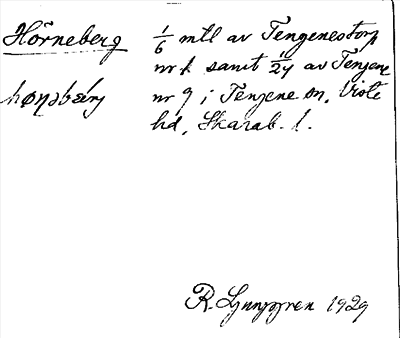 Hörneberg 1/6 mtl av Tengenestorp
nr 1 samt 1/24 av Tengene
nr 9 i Tengene sn, Viste
hd, Skarab. l.
R. Ljunggren 1929